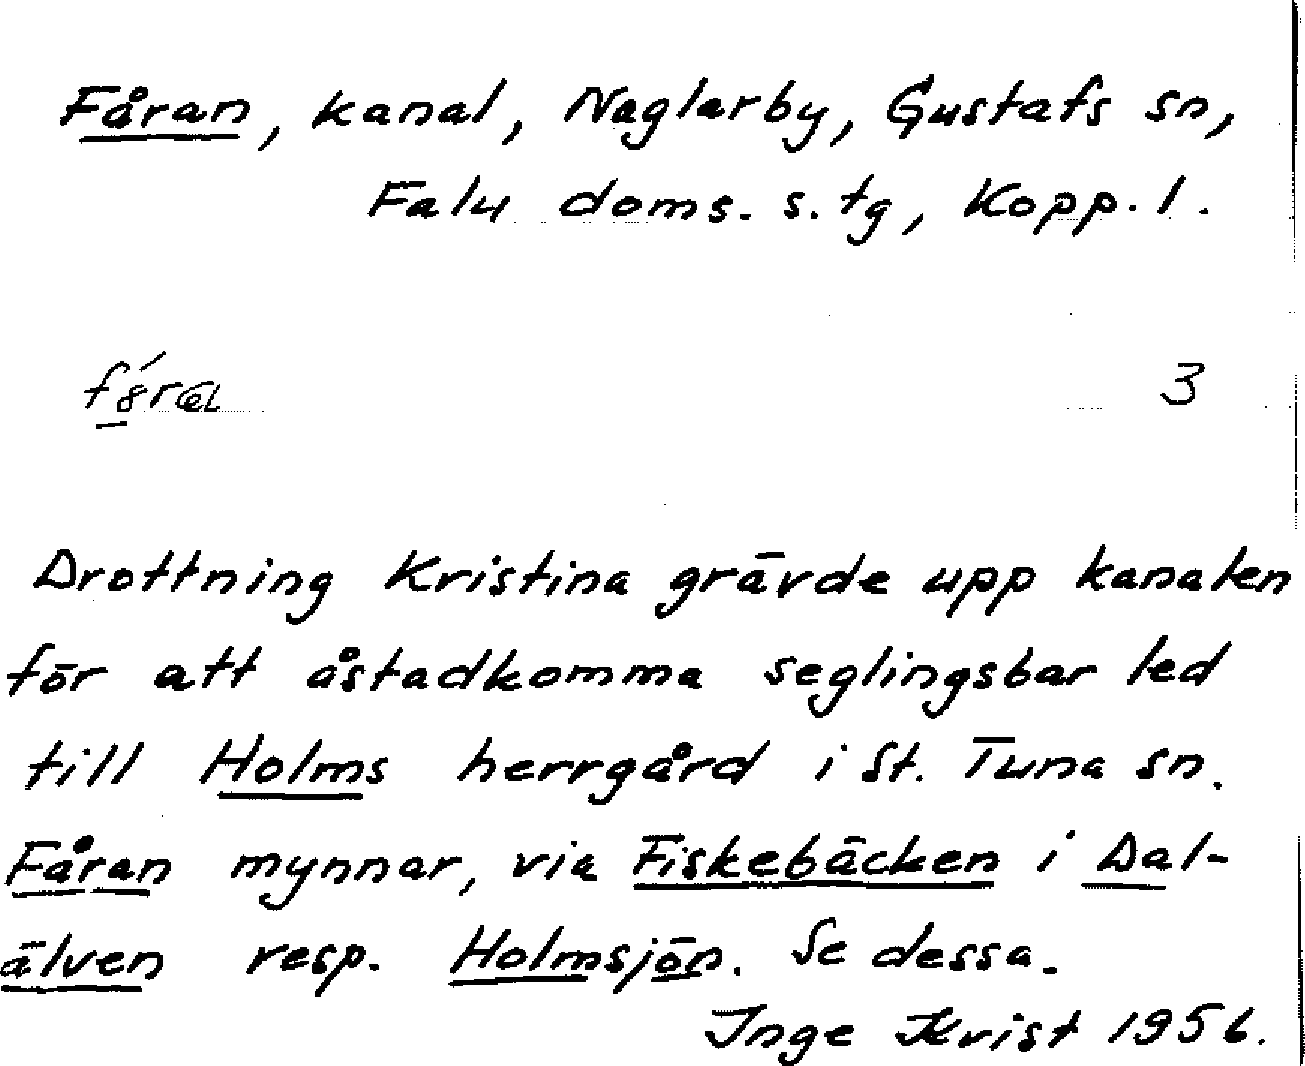 Fåran, kanal, Naglarby, Gustafs sn,
Falu doms. s. tg, Kopp. l.
3
Drottning Kristina grävde upp kanalen
för att åstadkomma seglingsbar led
till Holms herrgård i St. Tuna sn.
Fåran mynnar, via Fiskebäcken i Dal-
älven resp. Holmsjön. Se dessa.
Inge Kvist 1956.